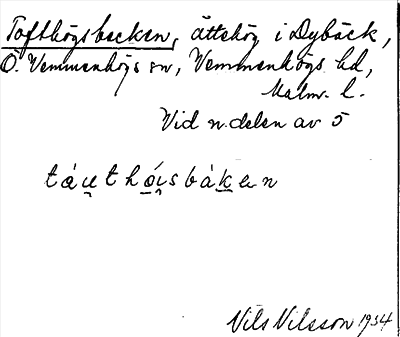 Tofthögsbacken, ättehög i Dybäck,
Ö. Vemmenhögs sn, Vemmenhögs hd,
Malm. l.
Vid n. delen av 5
táu̯th​ói̯sbáken
Nils Nilsson 1934